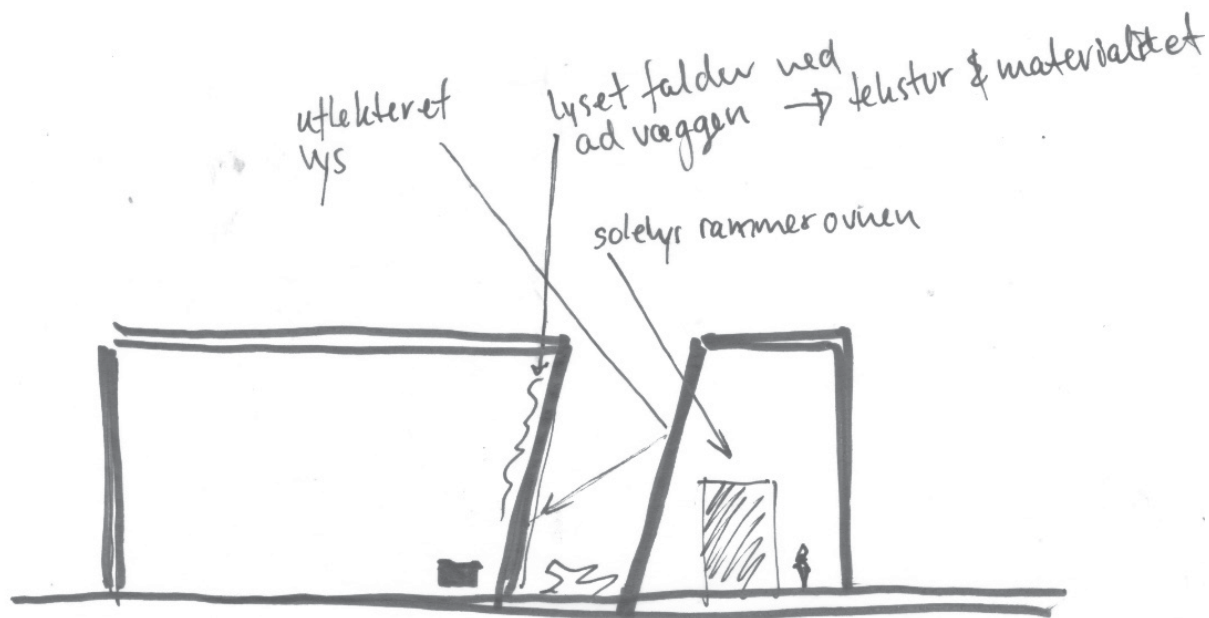 reflekteret
lys
lyset falder ned
ad væggen → tekstur & materialitet
sollys rammer ovnen